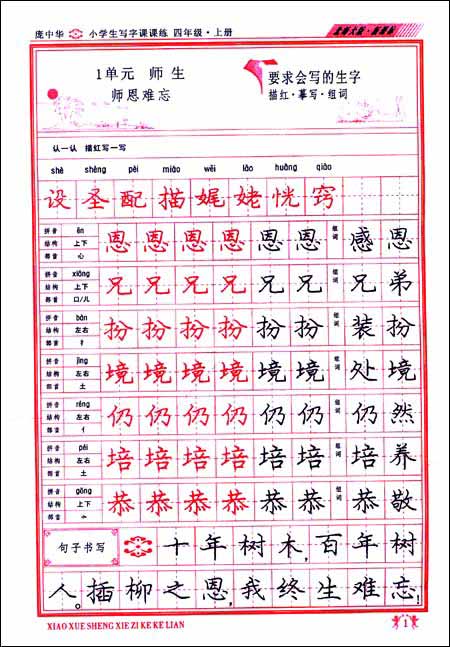 庞中华 小学生写字课课练 四年级·上册 北师大版·新课标
1单元 师生
师恩难忘
要求会写的生字
描红·摹写·组词
认一认 描红写一写
shè shèng pèi miáo wěi lǎo huǎng qiào
设 圣 配 描 娓 姥 恍 窍
拼音 ēn
结构 上下
部首 心
恩 恩 恩 恩 恩 恩 组词 感 恩
拼音 xiōng
结构 上下
部首 口/儿
兄 兄 兄 兄 兄 兄 组词 兄 弟
拼音 bàn
结构 左右
部首 扌
扮 扮 扮 扮 扮 扮 组词 装 扮
拼音 jìng
结构 左右
部首 土
境 境 境 境 境 境 组词 处 境
拼音 réng
结构 左右
部首 亻
仍 仍 仍 仍 仍 仍 组词 仍 然
拼音 péi
结构 左右
部首 土
培 培 培 培 培 培 组词 培 养
拼音 gōng
结构 上下
部首
恭 恭 恭 恭 恭 恭 组词 恭 敬
句子书写 十年树木,百年树
人。插柳之恩,我终生难忘!
XIAO XUE SHENG XIE ZI KE KE LIAN
1